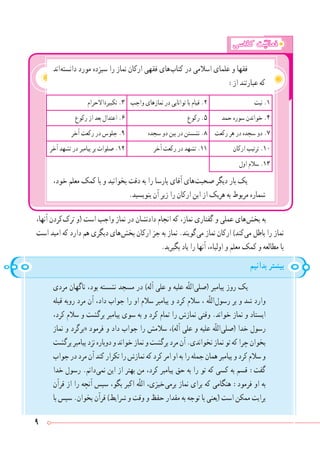 فعالیّت کلاسی
فقها و علمای اسلامی در کتاب‌های فقهی ارکان نماز را سیزده مورد دانسته‌اند
که عبارتند از :
۱. نیت ۲. قیام با توانایی در نمازهای واجب ۳. تکبیرةالاحرام
۴. خواندن سوره حمد ۵. رکوع ۶. اعتدال بعد از رکوع
۷. دو سجده در هر رکعت ۸. نشستن در بین دو سجده ۹. جلوس در رکعت آخر
۱۰. ترتیب ارکان ۱۱. تشهد در رکعت آخر ۱۲. صلوات بر پیامبر در تشهد آخر
۱۳. سلام اول
یک بار دیگر صحبت‌های آقای پارسا را به دقت بخوانید و با کمک معلم خود،
شماره مربوط به هریک از این ارکان را زیر آن بنویسید.
به بخش‌های عملی و گفتاری نماز، که انجام دادنشان در نماز واجب است (و ترک‌کردن آنها،
نماز را باطل می‌کند) ارکان نماز می‌گویند. نماز به جز ارکان بخش‌های دیگری هم دارد که امید است
با مطالعه و کمک معلم و اولیاء، آنها را یاد بگیرید.
بیشتر بدانیم
یک روز پیامبر (صلی‌الله علیه و علی آله) در مسجد نشسته بود، ناگهان مردی
وارد شد و بر رسول‌الله ، سلام کرد و پیامبر سلام او را جواب داد، آن مرد روبه قبله
ایستاد و نماز خواند. وقتی نمازش را تمام کرد و به سوی پیامبر برگشت و سلام کرد،
رسول خدا (صلی‌الله علیه و علی آله)، سلامش را جواب داد و فرمود «برگرد و نماز
بخوان چرا که تو نماز نخواندی. آن مرد برگشت و نماز خواند و دوباره نزد پیامبر برگشت
و سلام کرد و پیامبر همان جمله را به او امر کرد که نمازش را تکرار کند آن مرد در جواب
گفت : قسم به کسی که تو را به حق پیامبر کرد، من بهتر از این نمی‌دانم. رسول خدا
به او فرمود : هنگامی که برای نماز برمی‌خیزی، الله اکبر بگو، سپس آنچه را از قرآن
برایت ممکن است (یعنی با توجه به مقدار حفظ و وقت و شرایط) قرآن بخوان. سپس با
۹